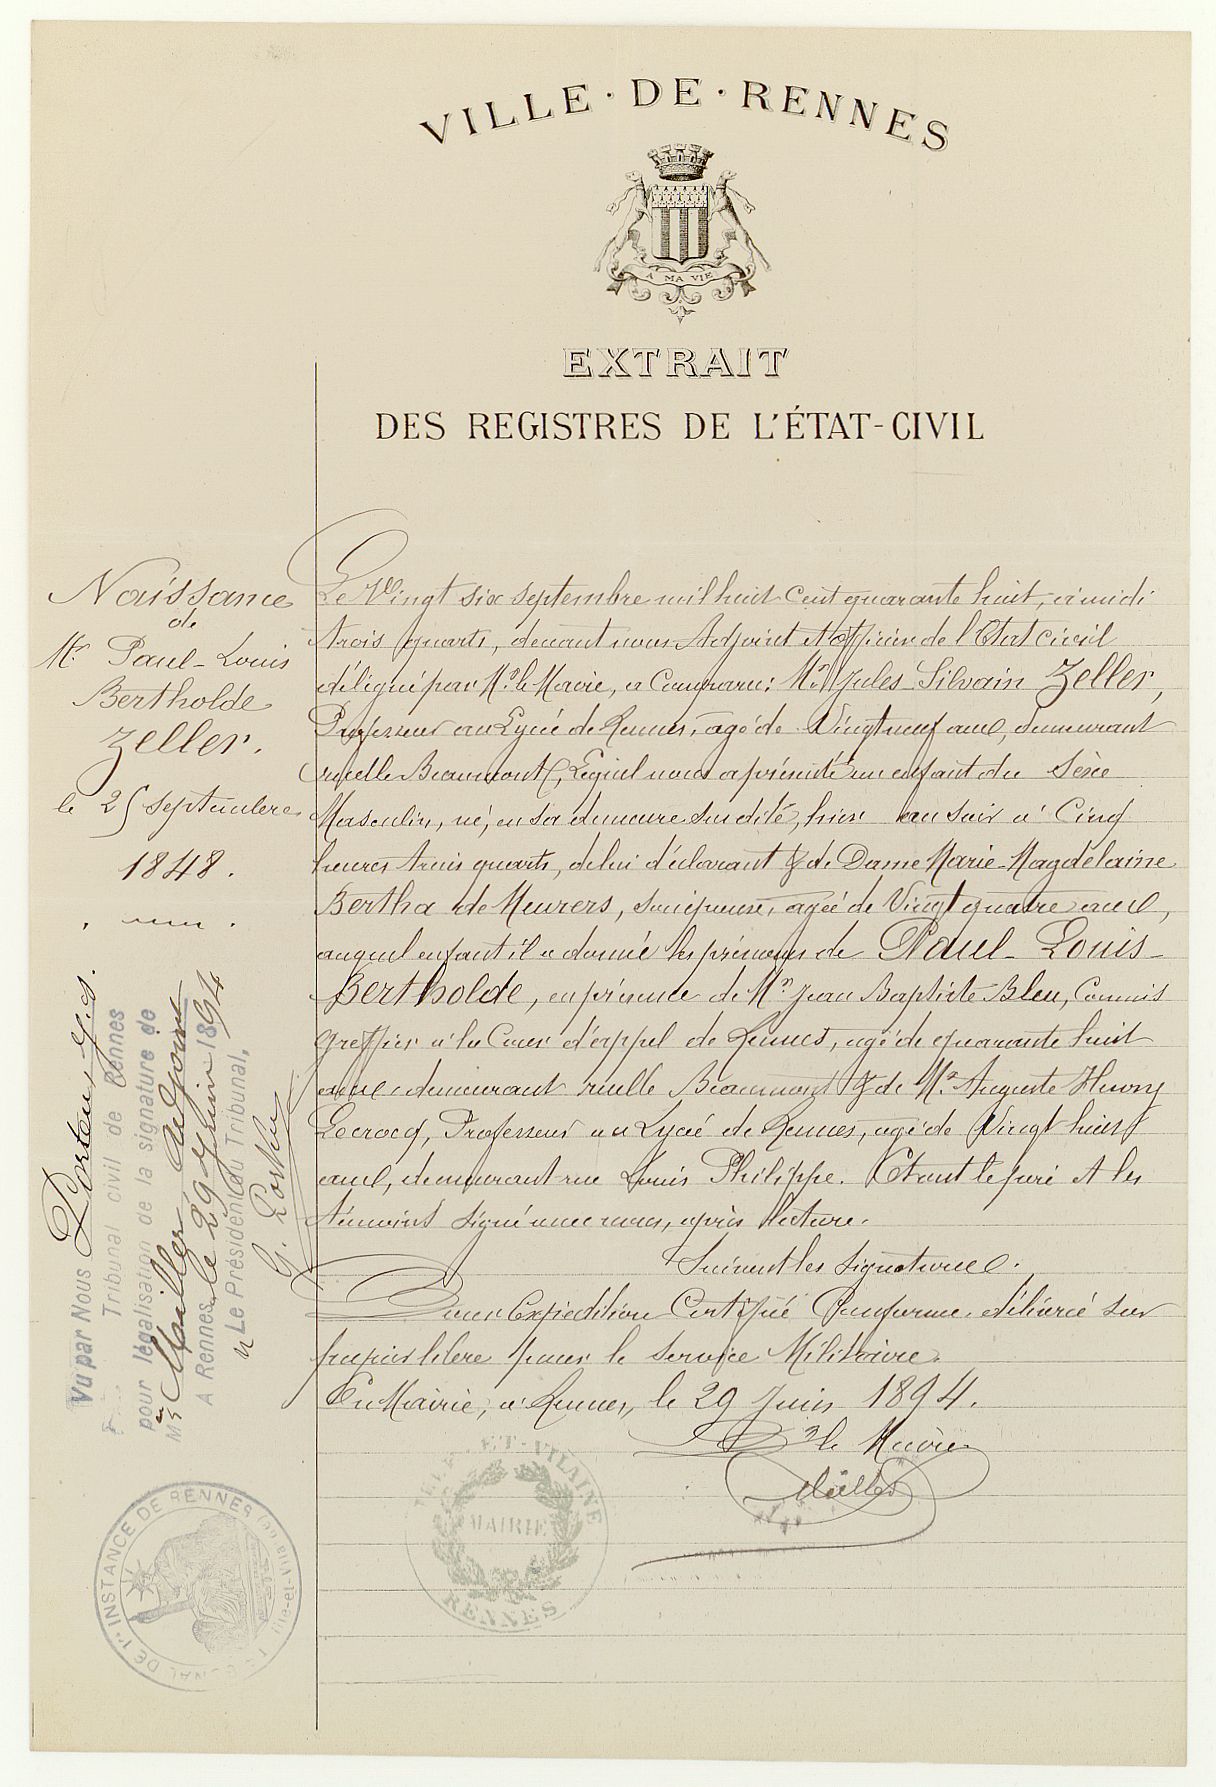 VILLE · DE · RENNES
A MA VIE
EXTRAIT
DES REGISTRES DE L'ÉTAT-CIVIL
Naissance
de
Mr Paul-Louis
Bertholde
Zeller.
le 25 septembre
1848.
Le Vingt six septembre mil huit cent quarante huit, à midi
trois quarts, devant nous Adjoint et Officier de l'Etat civil
délégué par Mr le Maire, a Comparu: Mr Jules-Silvain Zeller,
Professeur au Lycée de Rennes, agé de Vingt neuf ans, demeurant
ruelle Beaumont, Lequel nous a présenté un enfant du Sèxe
Masculin, né, en sa demeure susdite, hier au soir à Cinq
heures trois quarts, de lui déclarant & de Dame Marie-Magdelaine
Bertha de Meurers, son épouse, agée de Vingt quatre ans,
auquel enfant il a donné les prénoms de Paul-Louis-
Bertholde, en présence de Mr Jean Baptiste Bleu, Commis
greffier à la Cour d'appel de Rennes, agé de quarante huit
ans demeurant ruelle Beaumont & de Mr Auguste Henry
Lecrocq, Professeur au Lycée de Rennes, agé de Vingt huit
ans, demeurant rue Louis Philippe. Et ont le père et les
témoins signé avec nous, après lecture.
Suivent les signatures.
Pour Expédition Certifié Conforme, délivré sur
papier libre pour le Service Militaire.
En Mairie, à Rennes, le 29 Juin 1894.
le Maire
Vu par Nous Porteu
Tribunal civil de Rennes
pour légalisation de la signature de
Mr Mailler, Adjoint
A Rennes, le 29 Juin 1894
Le Président du Tribunal,
TRIBUNAL DE 1re INSTANCE DE RENNES (Ille-et-Vilaine)
ILLE-ET-VILAINE
MAIRIE
RENNES